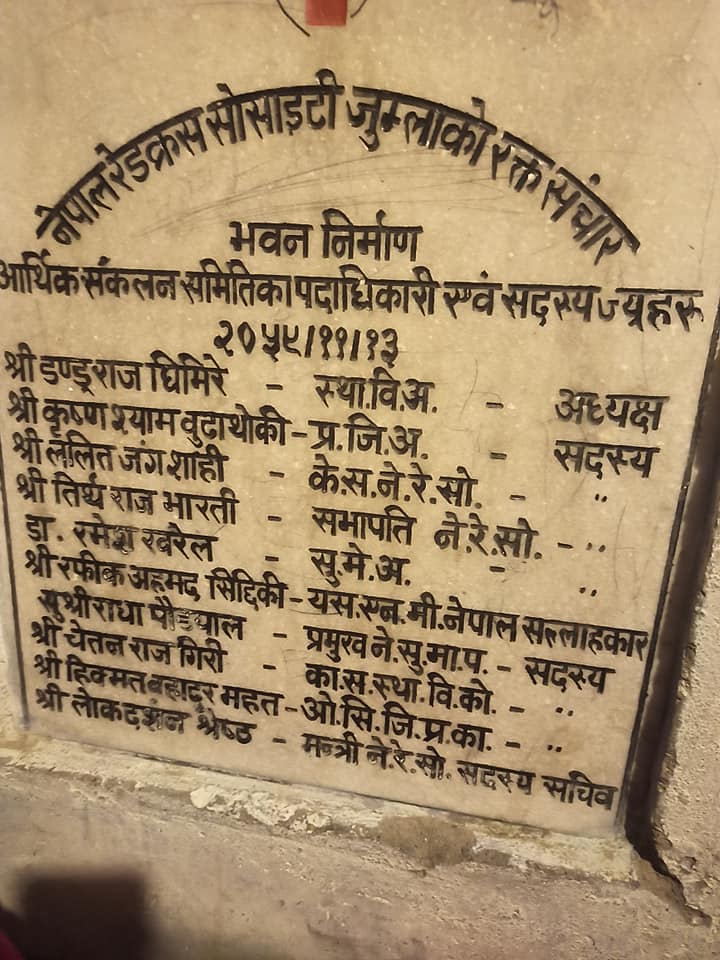 नेपाल रेडक्रस सोसाइटी जुम्लाको रक्त संचार
भवन निर्माण
आर्थिक संकलन समितिका पदाधिकारी एवं सदस्यज्यूहरू
२०५९/११/१३
श्री डण्डुराज घिमिरे - स्था.वि.अ. - अध्यक्ष
श्री कृष्ण श्याम वुढाथोकी - प्र.जि.अ. - सदस्य
श्री ललित जंग शाही - के.स.ने.रे.सो. - "
श्री तिर्थ राज भारती - सभापति ने.रे.सो. - "
डा. रमेश खरेल - सु.मे.अ. - "
श्री रफीक अहमद सिद्दिकी - यस.एन.मी.नेपाल सल्लाहकार
सुश्री राधा पौड्याल - प्रमुख ने.सु.मा.प. - सदस्य
श्री चेतन राज गिरी - का.स.स्था.वि.को. - "
श्री हिक्मत बहादुर महत - ओ.सि.जि.प्र.का. - "
श्री लोकदर्शन श्रेष्ठ - मन्त्री ने.रे.सो. सदस्य सचिव